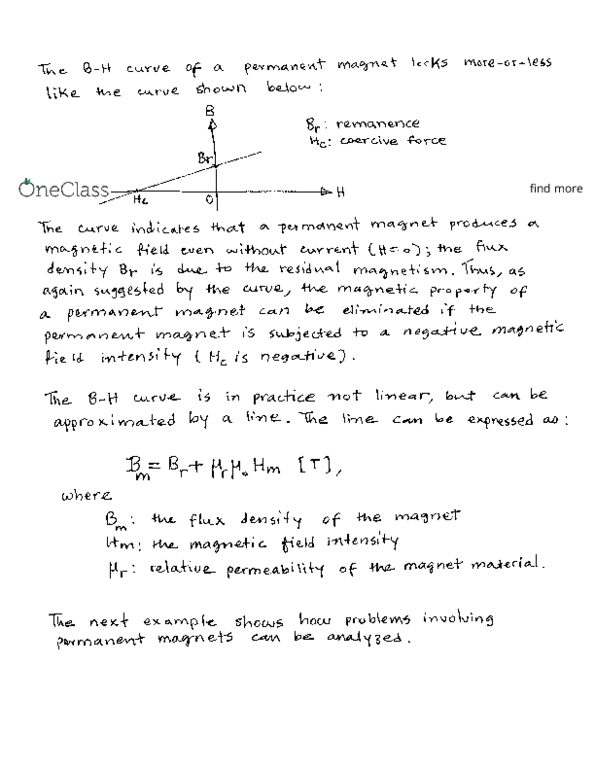 The B-H curve of a permanent magnet looks more-or-less
like the curve shown below:
B
Br: remanence
Hc: coercive force
Br
OneClass
find more
Hc
O
H
The curve indicates that a permanent magnet produces a
magnetic field even without current (H=0); the flux
density Br is due to the residual magnetism. Thus, as
again suggested by the curve, the magnetic property of
a permanent magnet can be eliminated if the
permanent magnet is subjected to a negative magnetic
field intensity (Hc is negative).
The B-H curve is in practice not linear, but can be
approximated by a line. The line can be expressed as:
Bm = Br + μrμ₀Hm [T],
where
Bm: the flux density of the magnet
Hm: the magnetic field intensity
μr: relative permeability of the magnet material.
The next example shows how problems involving
permanent magnets can be analyzed.